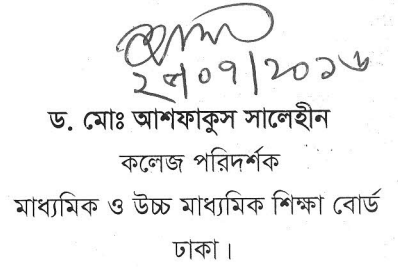 ড. মোঃ আশফাকুস সালেহীন
কলেজ পরিদর্শক
মাধ্যমিক ও উচ্চ মাধ্যমিক শিক্ষা বোর্ড
ঢাকা।